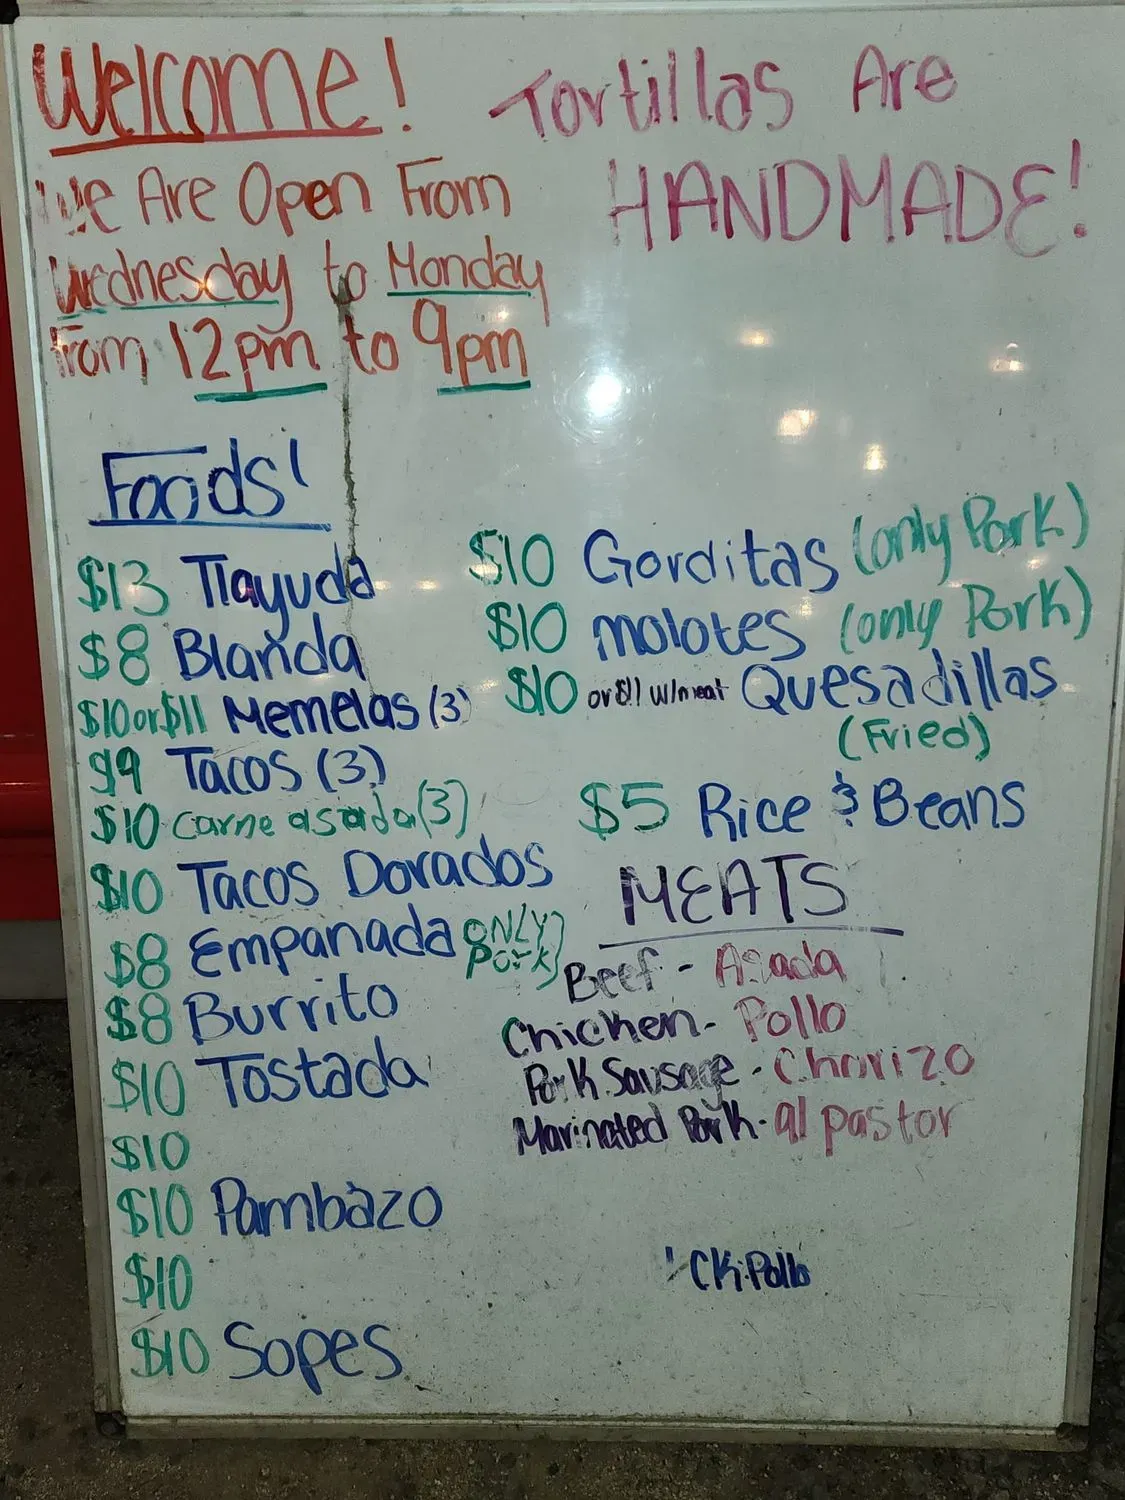 Welcome!
We Are Open From
Wednesday to Monday
From 12pm to 9pm
Tortillas Are
HANDMADE!
Foods!
$13 Tlayuda
$8 Blanda
$10 or $11 Memelas (3)
$9 Tacos (3)
$10 carne asada (3)
$10 Tacos Dorados
$8 Empanada (ONLY Pork)
$8 Burrito
$10 Tostada
$10
$10 Pambazo
$10
$10 Sopes
$10 Gorditas (only Pork)
$10 molotes (only Pork)
$10 or $11 w/meat Quesadillas
(Fried)
$5 Rice & Beans
MEATS
Beef - Asada
Chicken - Pollo
Pork Sausage - Chorizo
Marinated Pork - al pastor
Pollo